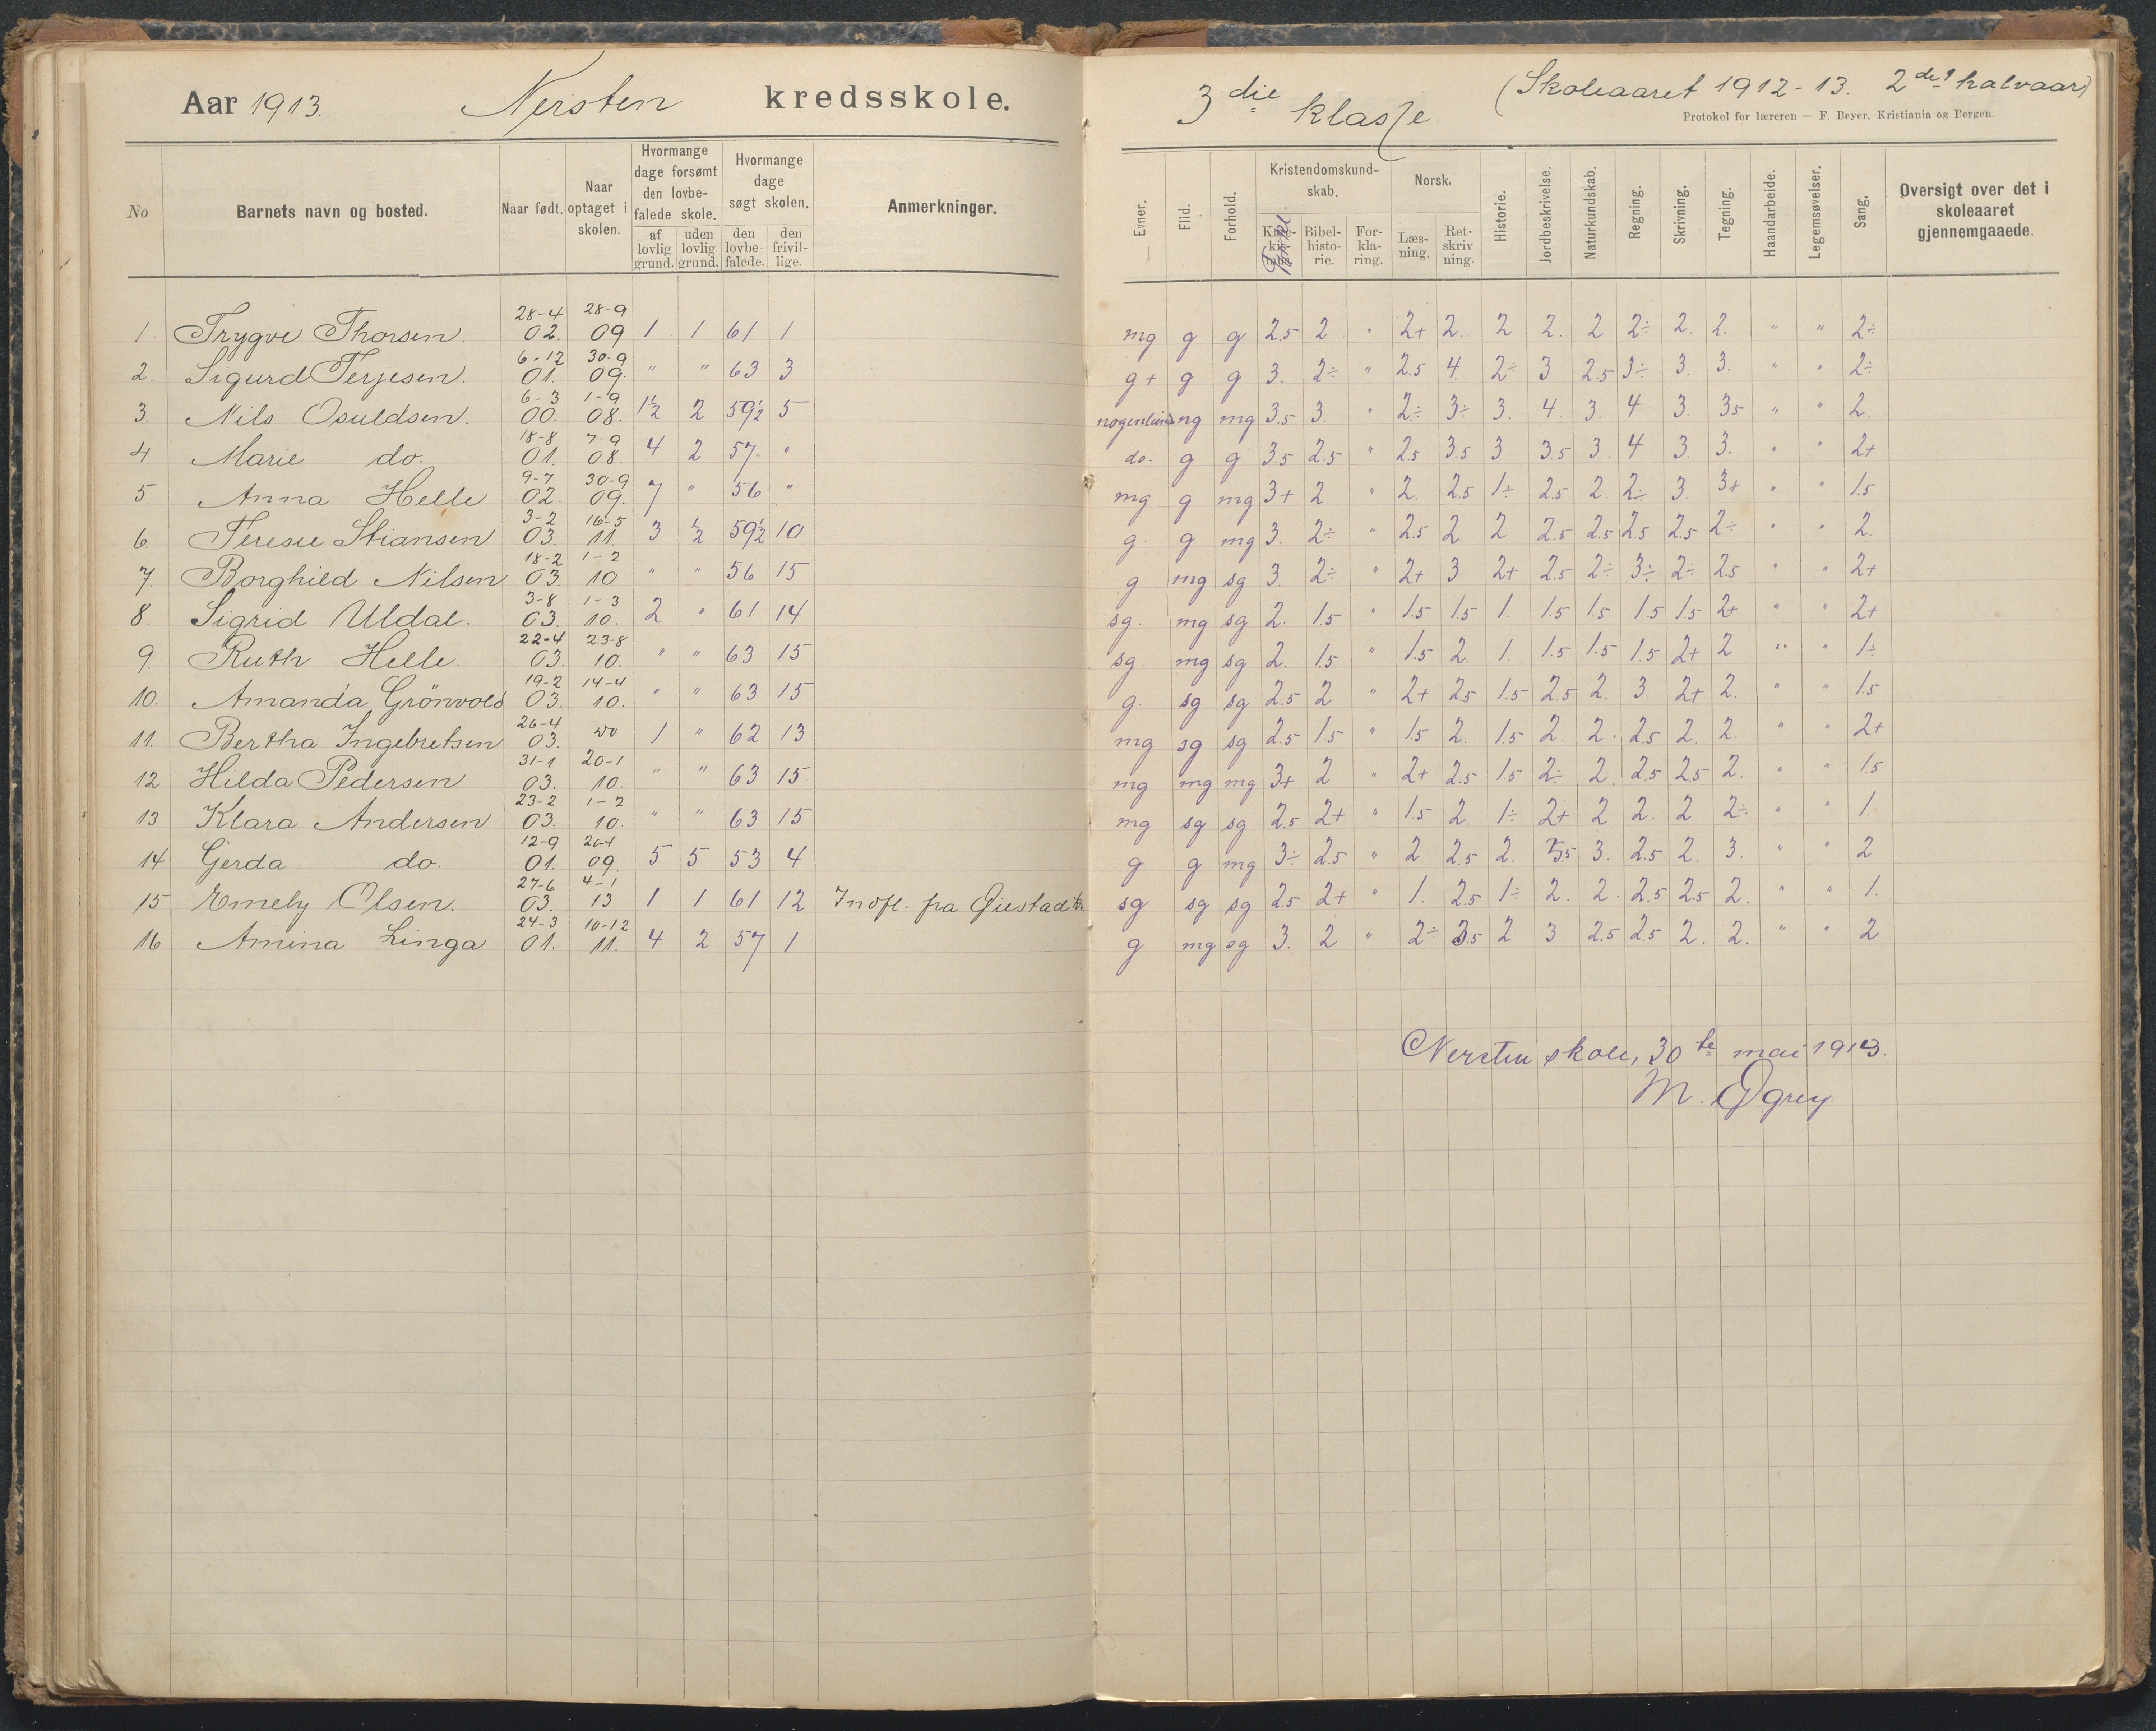 Aar 1913. Nersten kredsskole.
No Barnets navn og bosted. Naar født. Naar optaget i skolen. Hvormange dage forsømt den lovbefalede skole. af lovlig grund. uden lovlig grund. Hvormange dage søgt skolen. den lovbefalede. den frivillige. Anmerkninger.
1 Trygve Thorsen. 28-4 02. 28-9 09 1 1 61 1
2. Sigurd Terjesen. 6-12 01. 30-9 09. " " 63 3
3. Nils Osuldsen. 6-3 00. 1-9 08. 1½ 2 59½ 5
4 Marie do. 18-8 01. 7-9 08. 4 2 57 "
5. Anna Helle 9-7 02. 30-9 09. 7 " 56 "
6. Terese Stiansen 3-2 03. 16-5 11. 3 ½ 59½ 10
7. Borghild Nilsen 18-2 03. 1-2 10 " " 56 15
8. Sigrid Uldal. 3-8 03. 1-3 10. 2 " 61 14
9. Ruth Helle. 22-4 03. 23-8 10. " " 63 15
10. Amanda Grönvold 19-2 03. 14-4 10. " " 63 15
11. Bertha Ingebretsen 26-4 03. do 1 " 62 13
12 Hilda Pedersen 31-1 03. 20-1 10. " " 63 15
13 Klara Andersen 23-2 03. 1-2 10. " " 63 15
14 Gerda do. 12-9 01. 26-4 09. 5 5 53 4
15 Emely Olsen. 27-6 03. 4-1 13 1 1 61 12 Indfl. fra Øiestad
16 Amina Linga 24-3 01. 10-12 11. 4 2 57 1
3die klasse (Skoleaaret 1912-13. 2det halvaar)
Protokol for læreren — F. Beyer, Kristiania og Bergen.
Evner. Flid. Forhold. Kristendomskundskab. Bibelhistorie. Forklaring. Norsk. Læsning. Retskrivning. Historie. Jordbeskrivelse. Naturkundskab. Regning. Skrivning. Tegning. Haandarbeide. Legemsøvelser. Sang. Oversigt over det i skoleaaret gjennemgaaede.
mg g g 2.5 2 " 2+ 2. 2 2. 2 2÷ 2. 2. " " 2÷
g+ g g 3. 2÷ " 2.5 4. 2÷ 3 2.5 3÷ 3. 3. " " 2÷
nogenlunde ng mg 3.5 3. " 2÷ 3÷ 3. 4. 3. 4 3. 3.5 " " 2.
do- g g 3.5 2.5 " 2.5 3.5 3 3.5 3. 4 3. 3. " " 2+
mg g mg 3+ 2 " 2. 2.5 1÷ 2.5 2. 2÷ 3. 3+ " " 1.5
g. g mg 3. 2÷ " 2.5 2 2 2.5 2.5 2.5 2.5 2÷ " " 2.
g mg sg 3. 2÷ " 2+ 3 2+ 2.5 2÷ 3÷ 2÷ 2.5 " " 2+
sg. mg sg 2. 1.5 " 1.5 1.5 1. 1.5 1.5 1.5 1.5 2+ " " 2+
sg. mg sg 2. 1.5 " 1.5 2. 1. 1.5 1.5 1.5 2+ 2 " " 1÷
g. sg sg 2.5 2 " 2+ 2.5 1.5 2.5 2. 3. 2+ 2. " " 1.5
mg sg sg 2.5 1.5 " 1.5 2. 1.5 2. 2. 2.5 2. 2. " " 2+
mg mg mg 3+ 2 " 2+ 2.5 1.5 2÷ 2. 2.5 2.5 2. " " 1.5
mg sg sg 2.5 2+ " 1.5 2. 1÷ 2+ 2 2. 2 2÷ " " 1.
g g mg 3÷ 2.5 " 2 2.5 2. 3.5 3. 2.5 2. 3. " " 2
sg sg sg 2.5 2+ " 1. 2.5 1÷ 2. 2. 2.5 2.5 2. " " 1.
g mg sg 3. 2 " 2÷ 3.5 2 3 2.5 2.5 2. 2. " " 2
Nersten skole, 30te mai 1913.